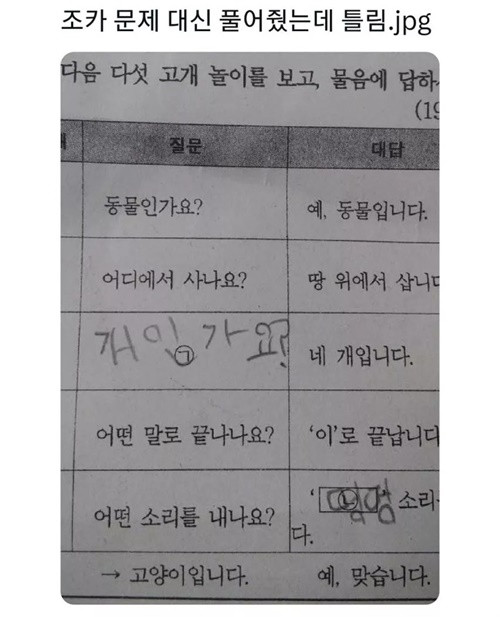 조카 문제 대신 풀어줬는데 틀림.jpg
다음 다섯 고개 놀이를 보고, 물음에 답하
(19
질문 대답
동물인가요? 예, 동물입니다.
어디에서 사나요? 땅 위에서 삽니다
개인가요? ㉠ 네 개입니다.
어떤 말로 끝나나요? '이'로 끝납니다
어떤 소리를 내나요? '㉡멍멍' 소리
다.
→ 고양이입니다. 예, 맞습니다.